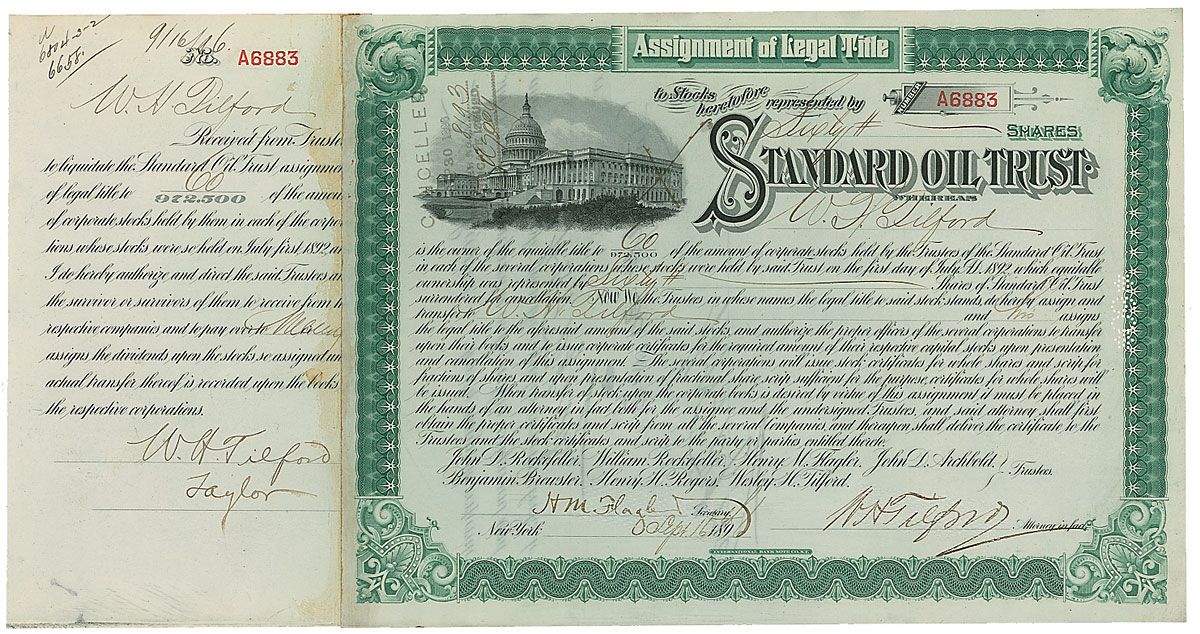 6804-3-2
6658.
9/16/96.
No.
A6883
W. H. Tilford
Received from Trustees
to liquidate the Standard Oil Trust assignment
of legal title to 60
972.500 of the amount
of corporate stocks held by them in each of the corpora
tions whose stocks were so held on July first 1892 and
I do hereby authorize and direct the said Trustees and
the survivor or survivors of them to receive from the
respective companies and to pay over to
assigns the dividends upon the stocks so assigned until
actual transfer thereof is recorded upon the books of
the respective corporations.
W. H. Tilford
Taylor
Assignment of Legal Title
to Stocks heretofore represented by
NUMBER
A6883
Sixty
SHARES
CANCELLED
STANDARD OIL TRUST
WHEREAS
W. H. Tilford
is the owner of the equitable title to 60
972.500 of the amount of corporate stocks held by the Trustees of the Standard Oil Trust
in each of the several corporations whose stocks were held by said Trust on the first day of July A.D. 1892, which equitable
ownership was represented by Sixty Shares of Standard Oil Trust
surrendered for cancellation. Now We the Trustees in whose names the legal title to said stock stands, do hereby assign and
transfer to W. H. Tilford and his assigns
the legal title to the aforesaid amount of the said stocks, and authorize the proper officers of the several corporations to transfer
upon their books and to issue corporate certificates for the required amount of their respective capital stocks upon presentation
and cancellation of this assignment. The several corporations will issue stock certificates for whole shares and scrip for
fractions of shares and upon presentation of fractional share scrip sufficient for the purpose, certificates for whole shares will
be issued. When transfer of stock upon the corporate books is desired by virtue of this assignment it must be placed in
the hands of an attorney in fact both for the assignee and the undersigned Trustees, and said attorney shall first
obtain the proper certificates and scrip from all the several Companies, and thereupon shall deliver the certificate to the
Trustees and the stock certificates and scrip to the party or parties entitled thereto.
John D. Rockefeller, William Rockefeller, Henry M. Flagler, John D. Archbold,
Benjamin Brewster, Henry H. Rogers, Wesley H. Tilford. Trustees.
H M. Flagler Secretary
New York Sept 16 189
W H Tilford Attorney in fact
INTERNATIONAL BANK NOTE CO. N.Y.